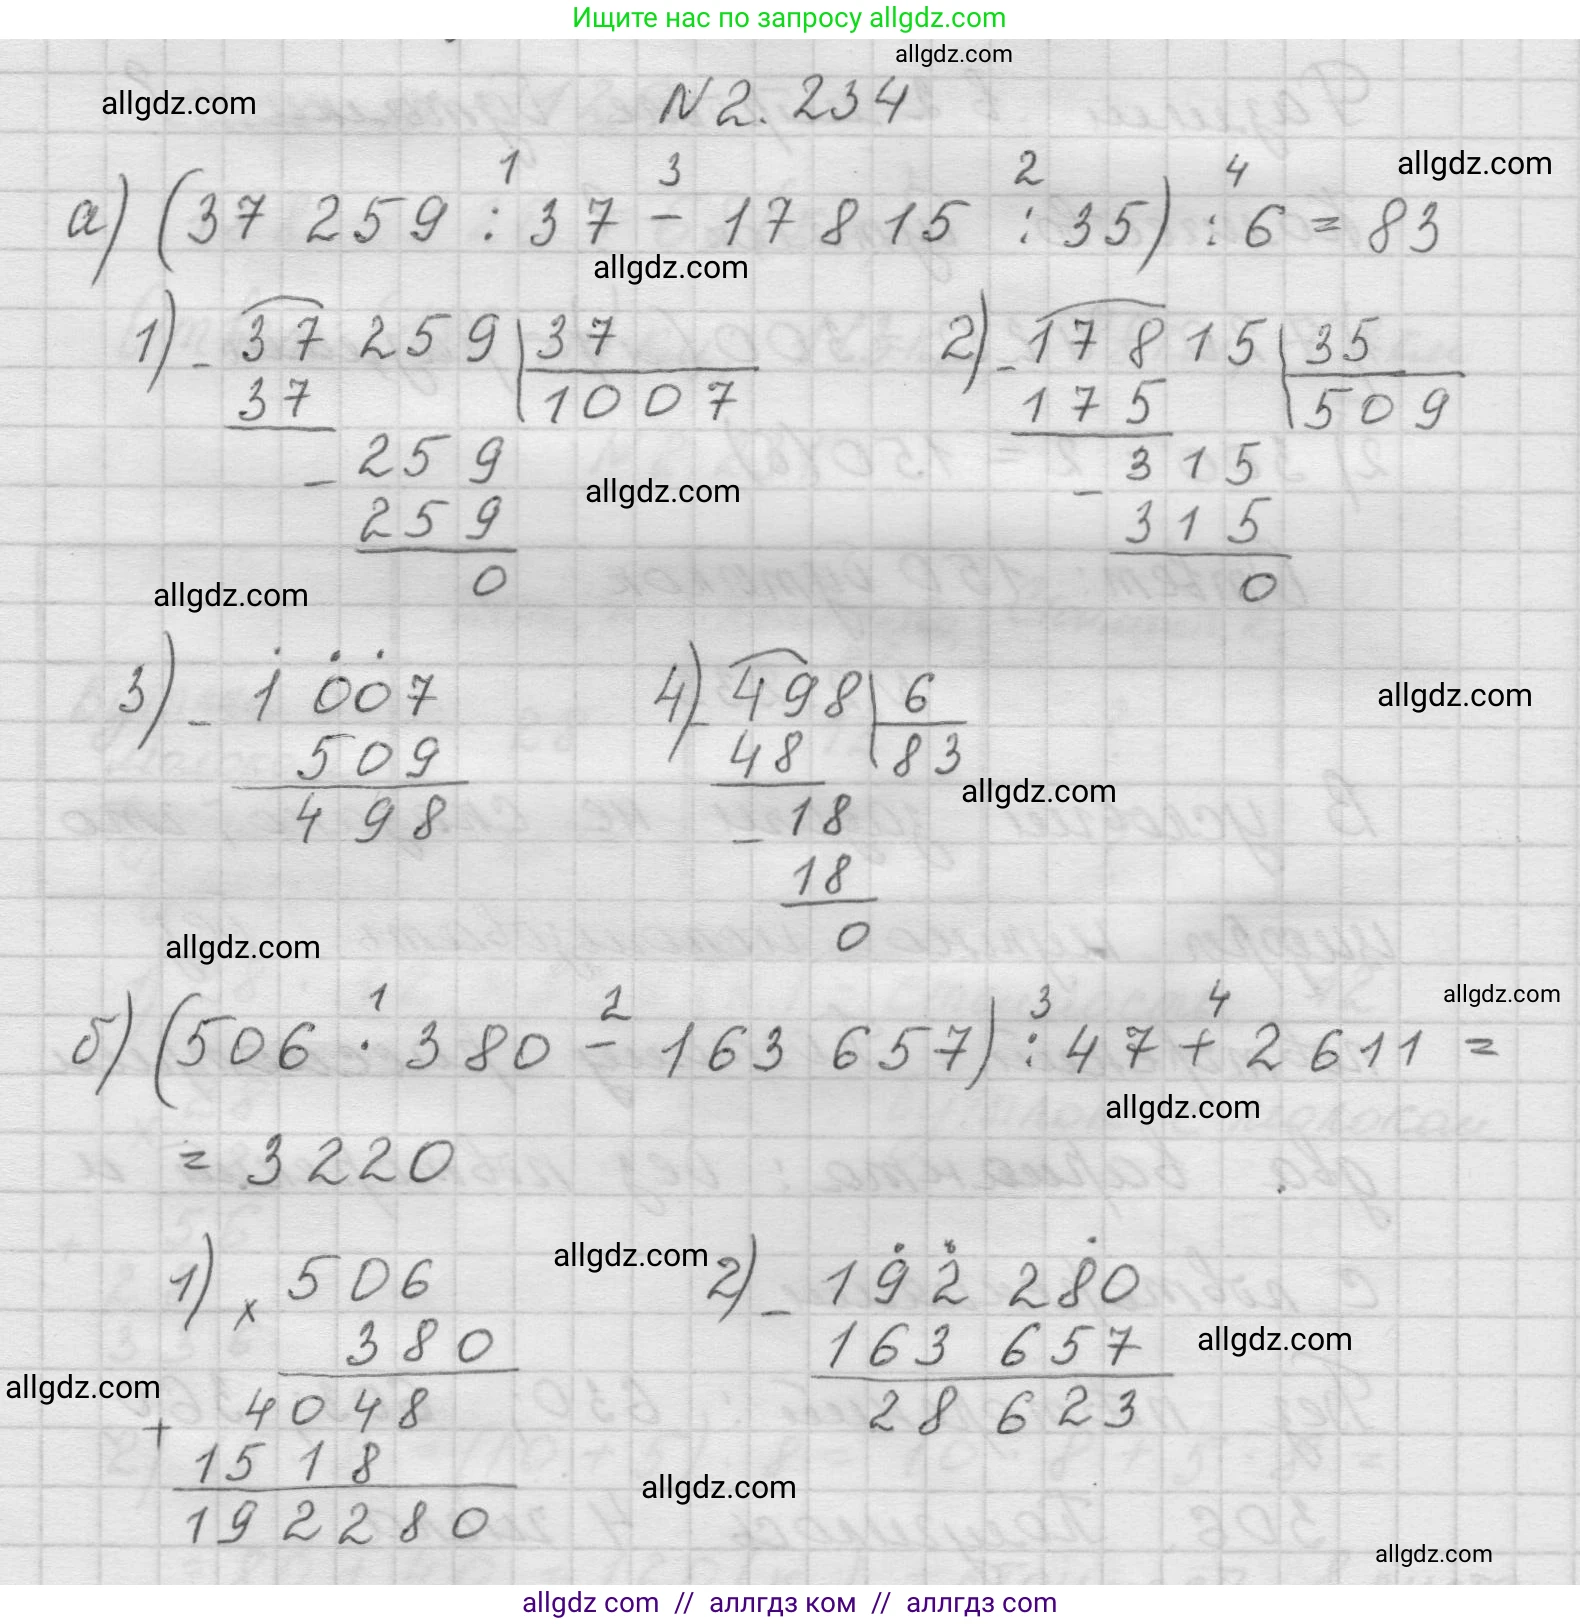 Ищите нас по запросу allgdz.com
allgdz.com
allgdz.com
N 2. 234
allgdz.com
1 3 2 4
а) (37 259 : 37 - 17 815 : 35) : 6 = 83
allgdz.com
1) - 37 259 | 37 2) - 178 15 | 35
37 1007 175 509
- 259 - 315
allgdz.com
259 315
0 0
allgdz.com
3) - 1 007 4) - 498 | 6
allgdz.com
509 48 83
allgdz.com
498 - 18
18
0
allgdz.com
allgdz.com
1 2 3 4
б) (506 · 380 - 163 657) : 47 + 2 611 =
allgdz.com
= 3220
allgdz.com
1) x 506 2) - 192 280
380 163 657
allgdz.com
allgdz.com
+ 4048 28 623
1518
allgdz.com
192280
allgdz.com
allgdz com // аллгдз ком // allgdz com